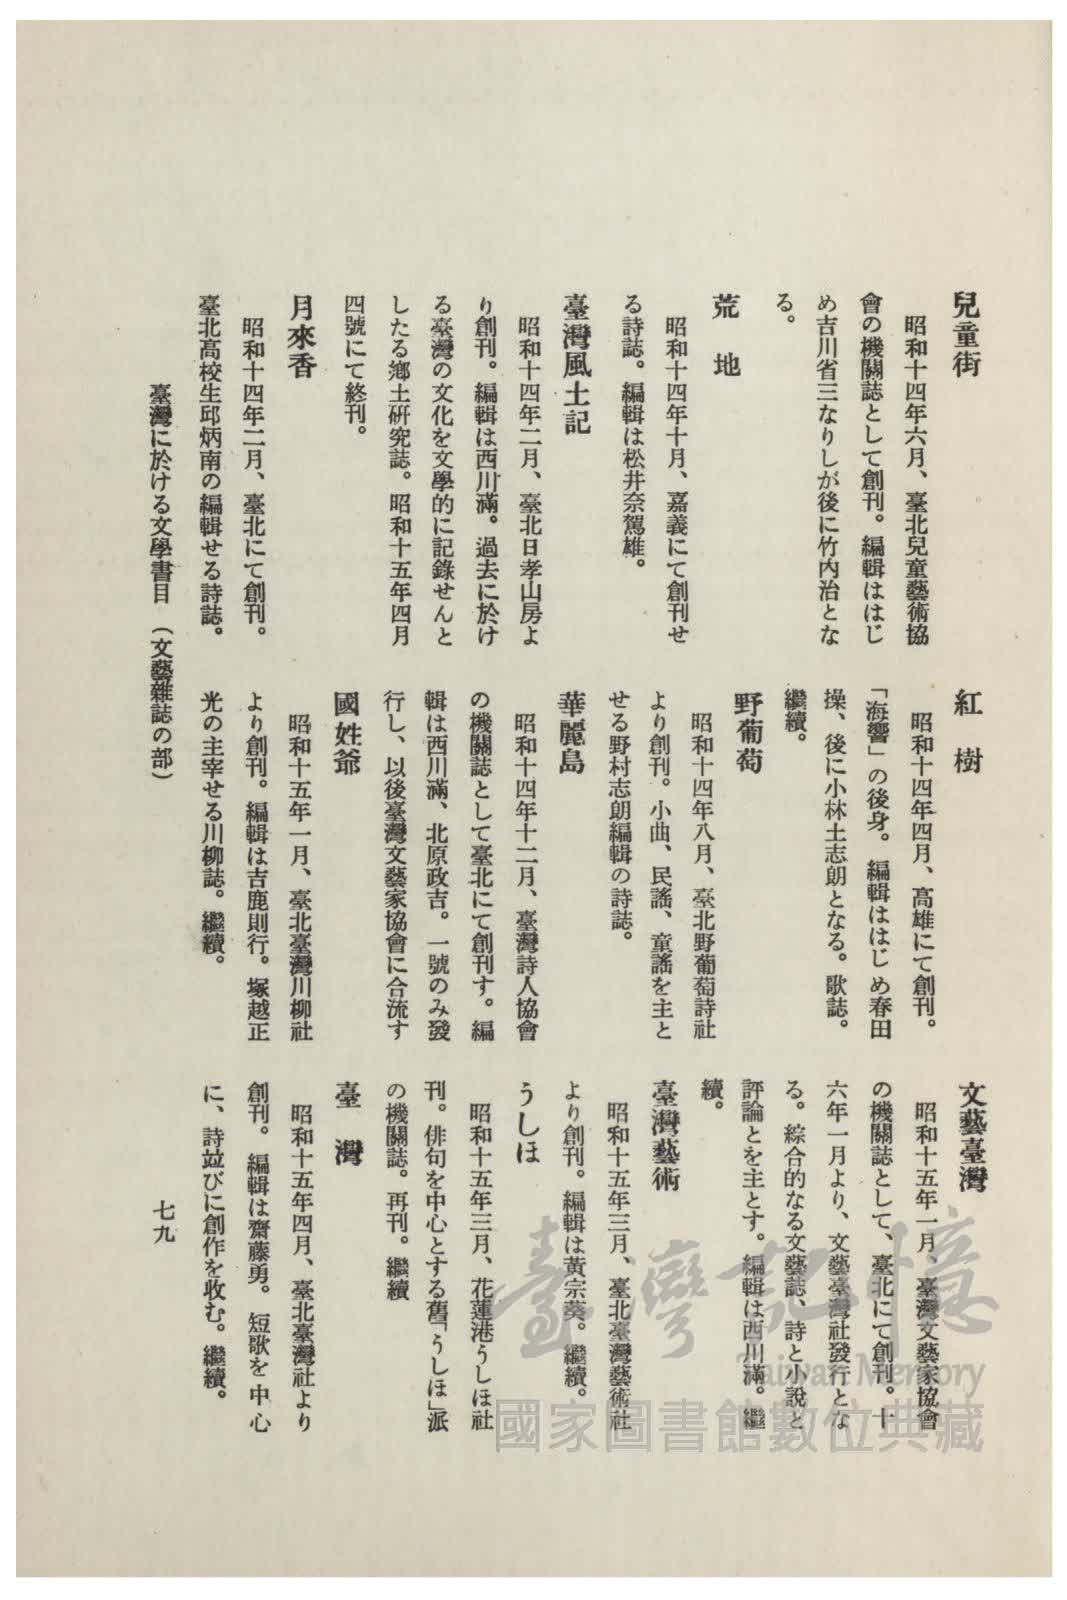 兒童街
昭和十四年六月、臺北兒童藝術協
會の機關誌として創刊。編輯ははじ
め吉川省三なりしが後に竹内治とな
る。
荒地
昭和十四年十月、嘉義にて創刊せ
る詩誌。編輯は松井奈駕雄。
臺灣風土記
昭和十四年二月、臺北日孝山房よ
り創刊。編輯は西川滿。過去に於け
る臺灣の文化を文學的に記錄せんと
したる鄕土硏究誌。昭和十五年四月
四號にて終刊。
月來香
昭和十四年二月、臺北にて創刊。
臺北高校生邱炳南の編輯せる詩誌。
紅樹
昭和十四年四月、高雄にて創刊。
「海響」の後身。編輯ははじめ春田
操、後に小林土志朗となる。歌誌。
繼續。
野葡萄
昭和十四年八月、臺北野葡萄詩社
より創刊。小曲、民謠、童謠を主と
せる野村志朗編輯の詩誌。
華麗島
昭和十四年十二月、臺灣詩人協會
の機關誌として臺北にて創刊す。編
輯は西川滿、北原政吉。一號のみ發
行し、以後臺灣文藝家協會に合流す
國姓爺
昭和十五年一月、臺北臺灣川柳社
より創刊。編輯は吉鹿則行。塚越正
光の主宰せる川柳誌。繼續。
文藝臺灣
昭和十五年一月、臺灣文藝家協會
の機關誌として、臺北にて創刊。十
六年一月より、文藝臺灣社發行とな
る。綜合的なる文藝誌、詩と小說と
評論とを主とす。編輯は西川滿。繼
續。
臺灣藝術
昭和十五年三月、臺北臺灣藝術社
より創刊。編輯は黃宗葵。繼續。
うしほ
昭和十五年三月、花蓮港うしほ社
刊。俳句を中心とする舊「うしほ」派
の機關誌。再刊。繼續
臺灣
昭和十五年四月、臺北臺灣社より
創刊。編輯は齋藤勇。短歌を中心
に、詩並びに創作を收む。繼續。
臺灣に於ける文學書目（文藝雜誌の部）
七九
臺灣記憶
Taiwan Memory
國家圖書館數位典藏